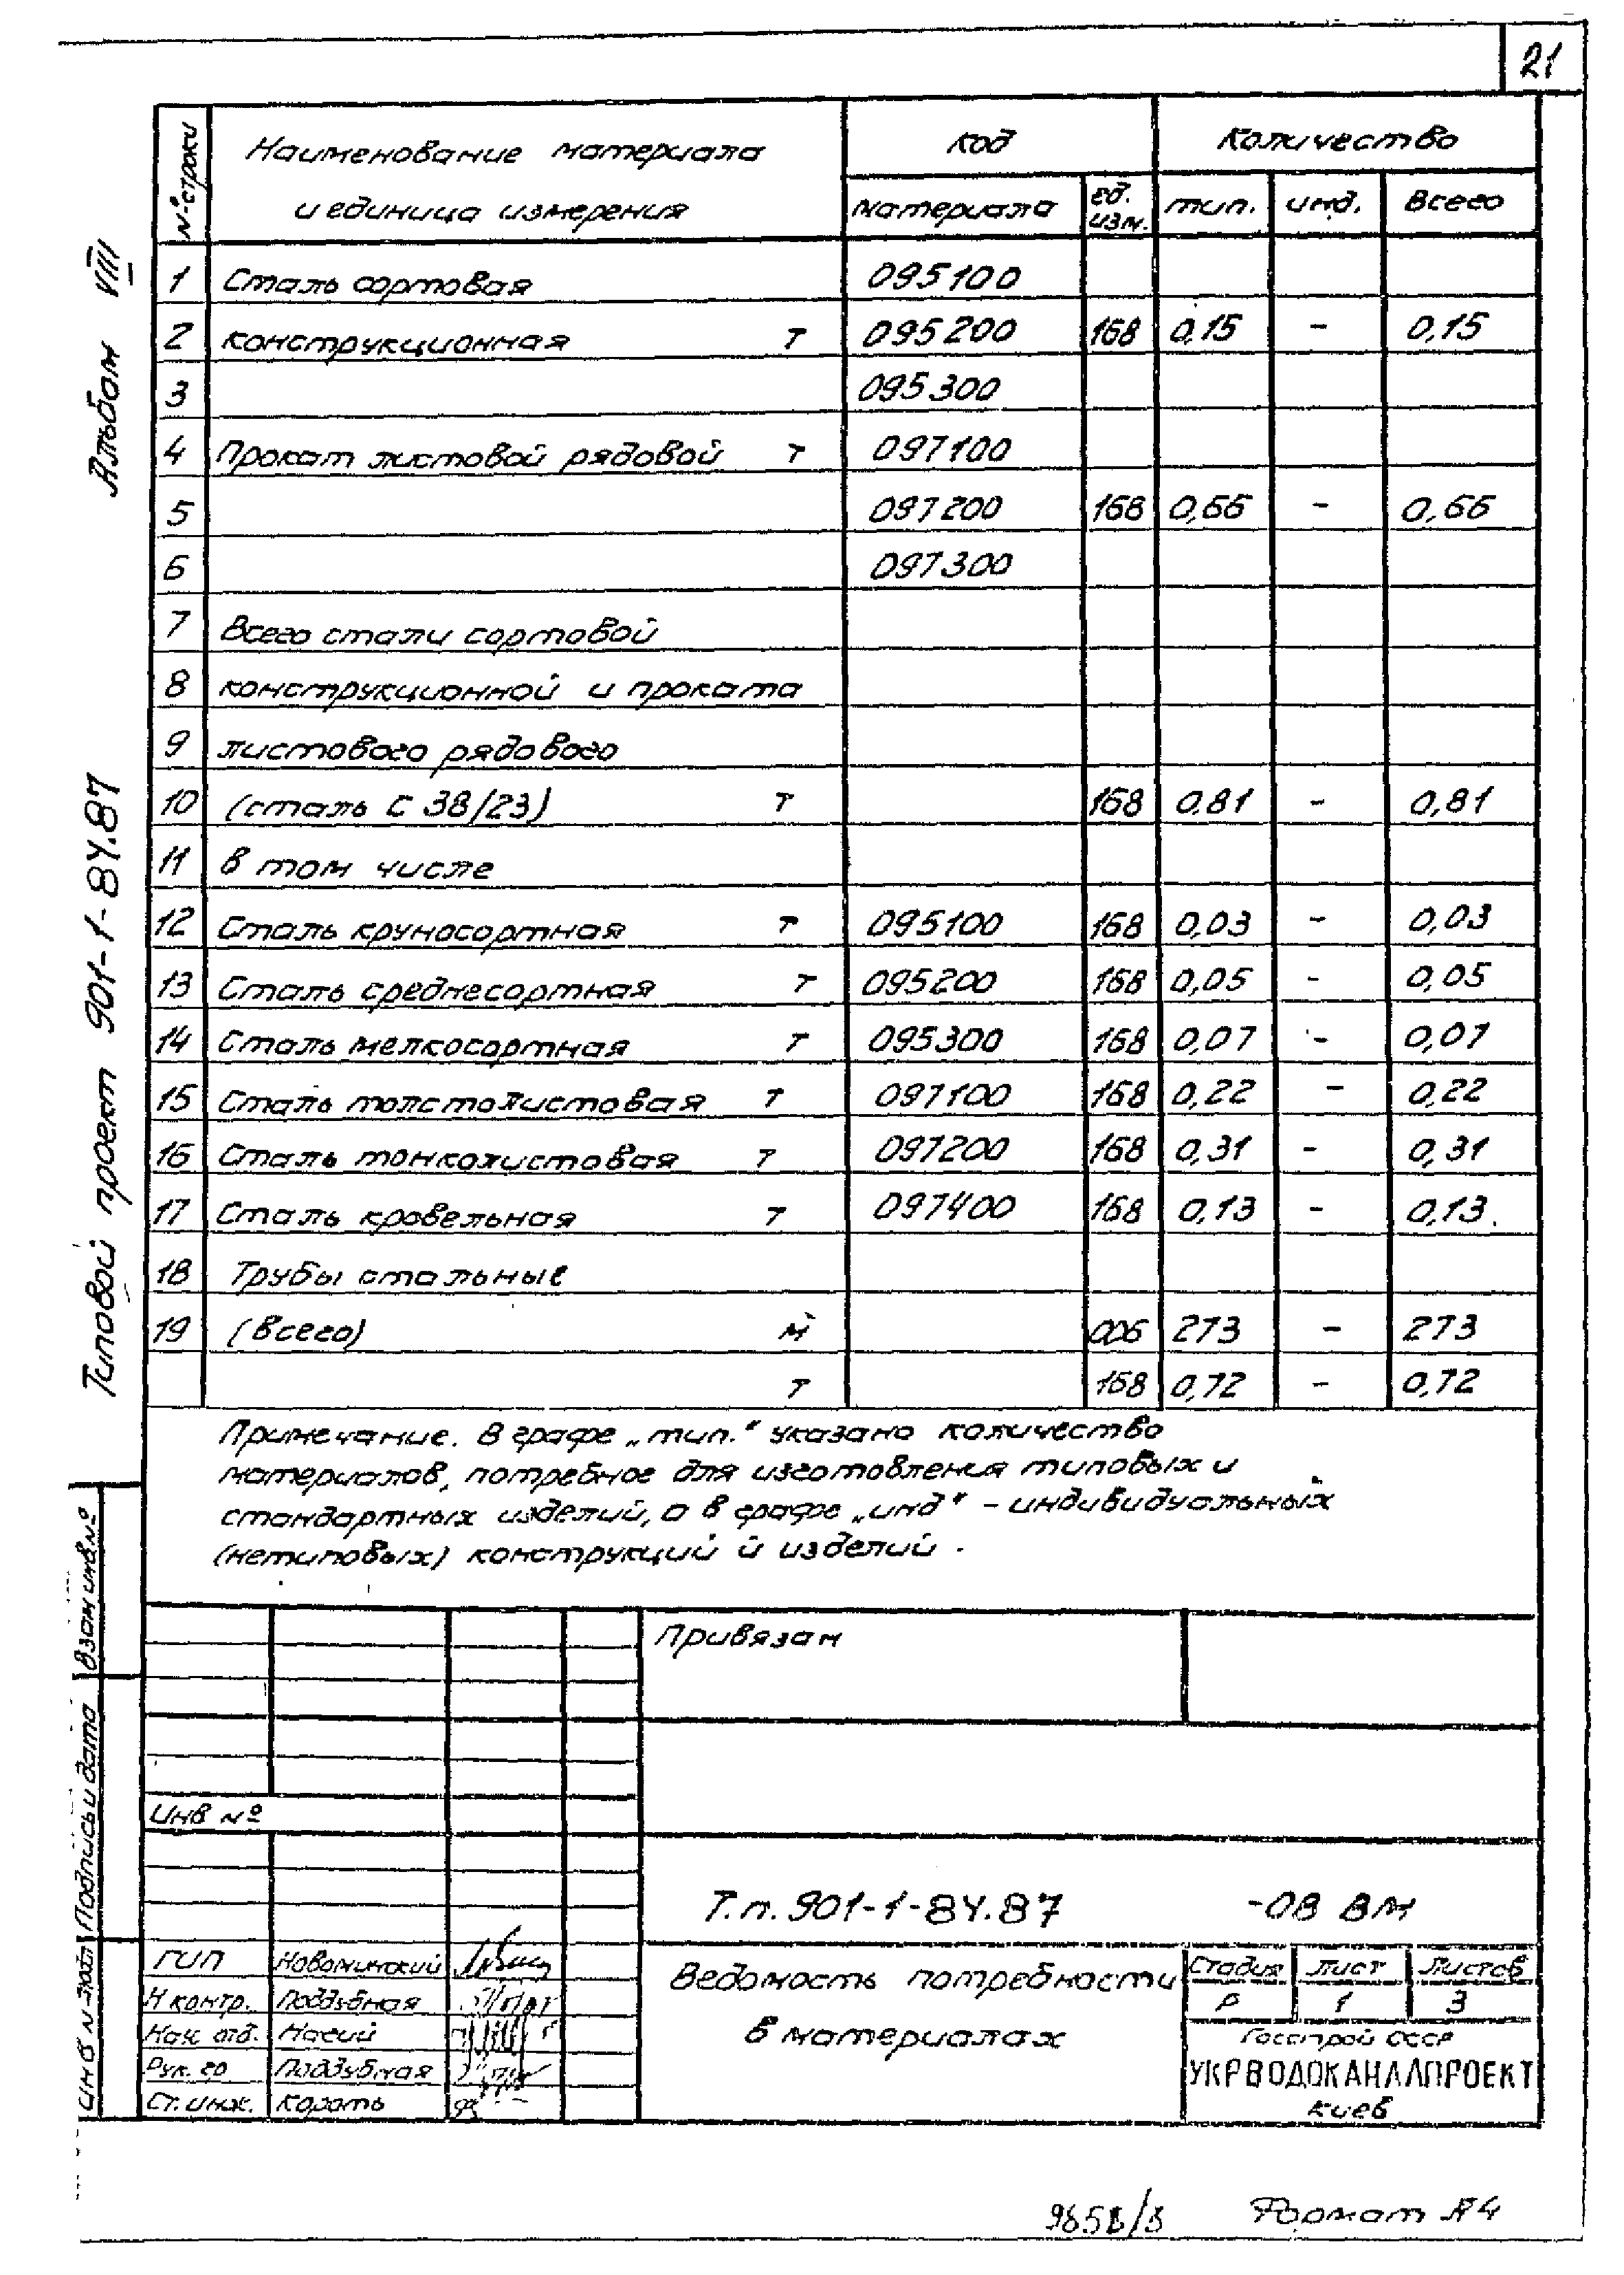 21
Альбом VIII
Типовой проект 901-1-84.87
№ строки | Наименование материала и единица измерения | Код | Количество
материала | ед. изм. | тип. | инд. | Всего
1 Сталь сортовая 095100
2 конструкционная т 095200 168 0,15 – 0,15
3 095300
4 Прокат листовой рядовой т 097100
5 097200 168 0,66 – 0,66
6 097300
7 Всего стали сортовой
8 конструкционной и проката
9 листового рядового
10 (сталь С 38/23) т 168 0,81 – 0,81
11 в том числе
12 Сталь крупносортная т 095100 168 0,03 – 0,03
13 Сталь среднесортная т 095200 168 0,05 – 0,05
14 Сталь мелкосортная т 095300 168 0,07 – 0,07
15 Сталь толстолистовая т 097100 168 0,22 – 0,22
16 Сталь тонколистовая т 097200 168 0,31 – 0,31
17 Сталь кровельная т 097400 168 0,13 – 0,13
18 Трубы стальные
19 (всего) м 006 273 – 273
т 168 0,72 – 0,72
Примечание. В графе „тип.“ указано количество
материалов, потребное для изготовления типовых и
стандартных изделий, а в графе „инд“ – индивидуальных
(нетиповых) конструкций и изделий.
Взам инв №
Подпись и дата
Инв № подл
Привязан
Инв №
Т.п. 901-1-84.87 -08 ВМ
ГИП Новоминский
Н контр. Поддубная
Нач. отд. Насий
Рук. гр Поддубная
Ст. инж. Короть
Ведомость потребности
в материалах
Стадия Лист Листов
Р 1 3
Госстрой СССР
УКРВОДОКАНАЛПРОЕКТ
Киев
Формат А4